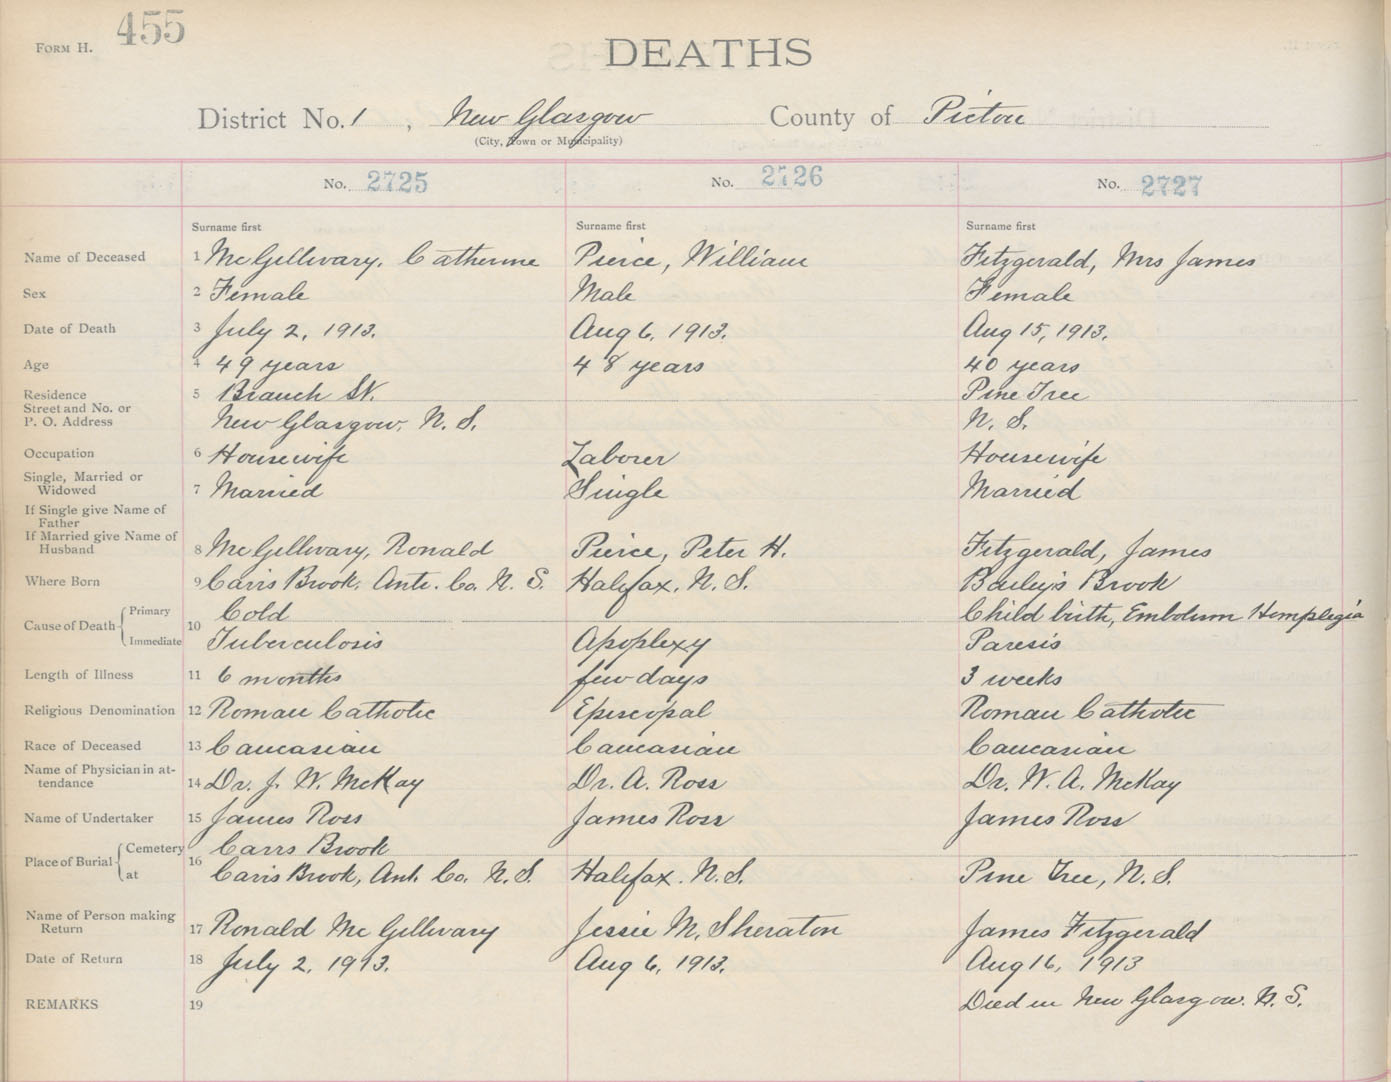 FORM H. 455
DEATHS
District No. 1, New Glasgow County of Pictou
(City, Town or Municipality)
No. 2725 No. 2726 No. 2727
Surname first Surname first Surname first
Name of Deceased 1 McGillivary, Catherine Pierce, William Fitzgerald, Mrs James
Sex 2 Female Male Female
Date of Death 3 July 2, 1913. Aug 6, 1913. Aug 15, 1913.
Age 4 49 years 48 years 40 years
Residence 5 Branch St. Pine Tree
Street and No. or
P. O. Address New Glasgow, N. S. N. S.
Occupation 6 Housewife Laborer Housewife
Single, Married or
Widowed 7 Married Single Married
If Single give Name of
Father
If Married give Name of
Husband 8 McGillivary, Ronald Pierce, Peter H. Fitzgerald, James
Where Born 9 Carrs Brook, Ant. Co. N. S. Halifax, N. S. Bailey's Brook
Cause of Death Primary 10 Cold Child birth, Embolism Hemplegia
Immediate Tuberculosis Apoplexy Paresis
Length of Illness 11 6 months few days 3 weeks
Religious Denomination 12 Roman Catholic Episcopal Roman Catholic
Race of Deceased 13 Caucasian Caucasian Caucasian
Name of Physician in at-
tendance 14 Dr. J. W. McKay Dr. A. Ross Dr. W. A. McKay
Name of Undertaker 15 James Ross James Ross James Ross
Place of Burial Cemetery 16 Carrs Brook
at Carrs Brook, Ant. Co. N. S. Halifax. N. S. Pine Tree, N. S.
Name of Person making
Return 17 Ronald McGillivary Jessie M. Sheraton James Fitzgerald
Date of Return 18 July 2, 1913. Aug 6, 1913. Aug 16, 1913
REMARKS 19 Died in New Glasgow. N. S.